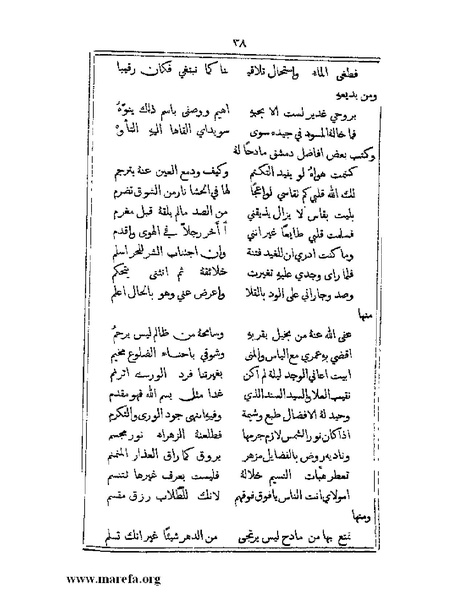 ٣٨
فطفى الماء واستحال تلاقيـ نا كما نبتغي فكان رقيبا
ومن بديعه
بروحي غدير لست الا بحبهِ اهيم ووصفى باسم ذلك ينوّهُ
فما خالهُ المسود في جيده سوى سويداي القاها اليهِ التأوّه
وكتب بعض افاضل دمشق مادحًا لهُ
كتمت هواهُ لو يفيد التكتم وكيف ودمع العين عنهُ يترجم
لك الله قلبي كم تقاسي لواعجًا لها في الحشا نار من الشوق تضرم
بليت بقاس لا يزال يذيقني من الصد مالم يلقهُ قبل مغرم
فسلمت قلبي طايعًا غير انني أ أخر رجلًا في الهوى واقدم
وما كنت ادري ان للغيد فتنة وان اجتناب الشر للحر اسلم
فلما راى وجدي عليهِ تغيرت خلائقة ثم انثنى يتحكم
وصد وجاراني على الود بالقلا واعرض عني وهو بالحال اعلم
منها
عفى الله عنهُ من بخيل بقربهِ وسامحهُ من ظالم ليس يرحمُ
اقضي بهِ عمري مع الياس والمنى وشوقي باحناء الضلوع مخيم
ابيت اعاني الوجد ليلة لم اكن بغير ثنا فرد الورى اترنم
نقيب العلا والسيد السند الذي غدا مثل بسم الله فهو مقدم
وحيد لهُ الافضال طبع وشيمة وفيهِ انتهى جود الورى والتكرم
اذا كان نور الشمس لازم جرمها فطلعتهُ الزهراء نور مجسم
وناديهِ روض بالفضايل مزهر بروق كما راق العذار المنمنم
تعطر هبّات النسيم خلالهُ فليست بعرف غيرها تتنسم
امولاي انت الناس يا فوق فوقهم لانك للطّلاب رزق مقسم
ومنها
تمتع بها من مادح ليس يرتجى من الدهر شيئًا غير انك تسلم
www.marefa.org